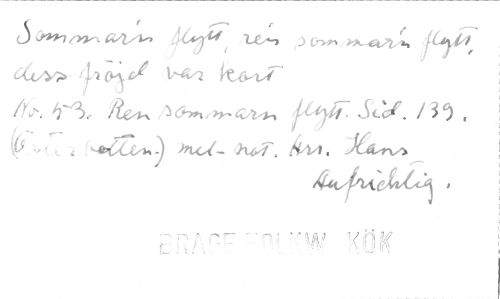 Sommar'n flytt, re'n sommar'n flytt,
dess fröjd var kort
No. 53. Ren sommarn flytt. Sid. 139.
(Österbotten.) mel-not. Arr. Hans
Aufrichtig.
BRAGE FOLKW KÖK